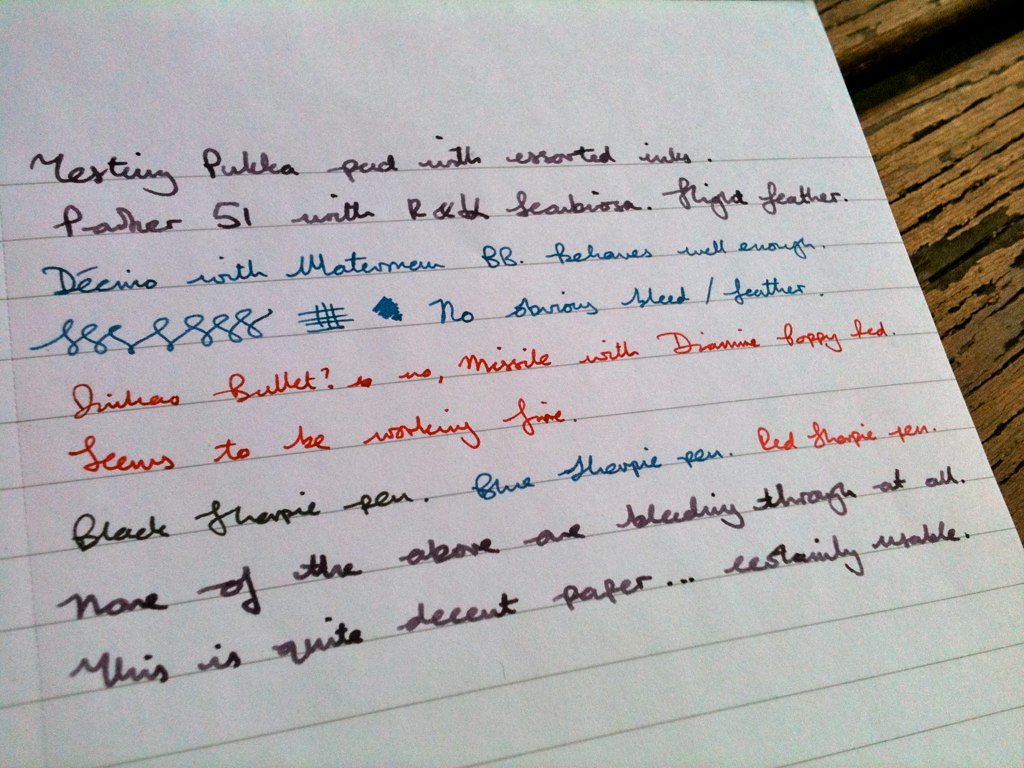 Testing Pukka pad with assorted inks.
Parker 51 with R&K Scabiosa. Slight feather.
Décimo with Waterman BB. Behaves well enough.
No obvious bleed / feather.
Bullet? no, Missile with Diamine Poppy Red.
Seems to be working fine.
Black Sharpie pen. Blue Sharpie pen. Red Sharpie pen.
None of the above are bleeding through at all.
This is quite decent paper... certainly usable.